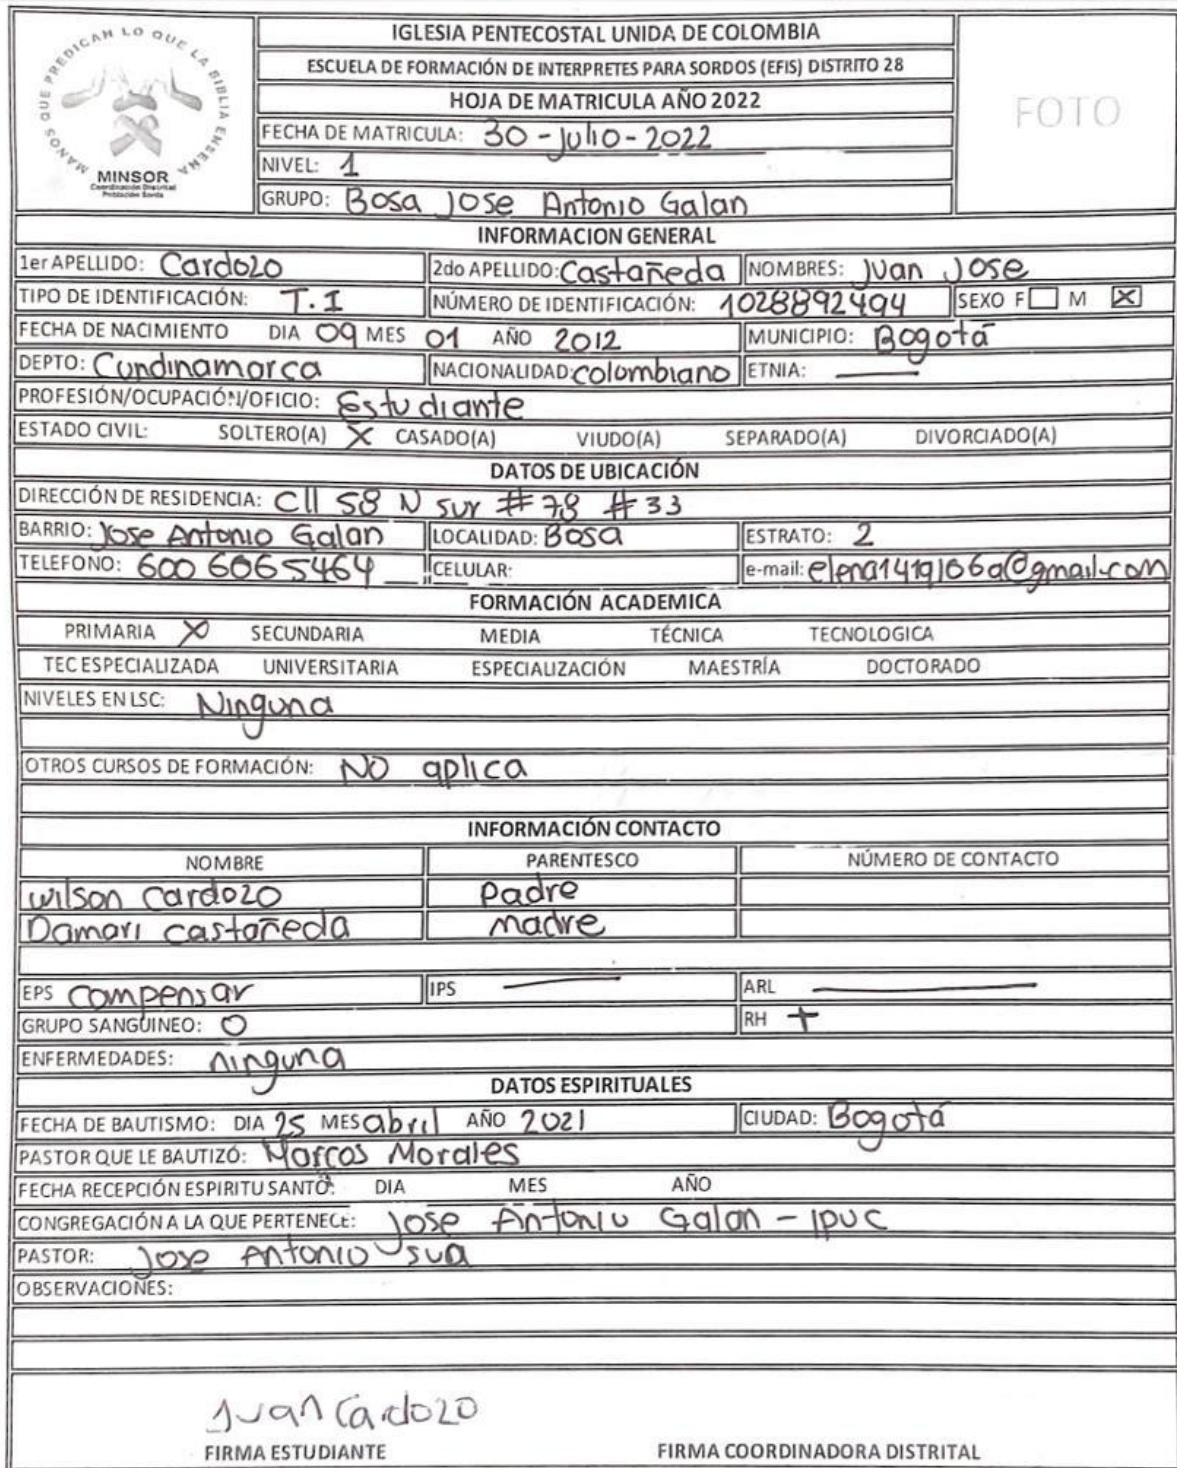 MANOS QUE PREDICAN LO QUE LA BIBLIA ENSEÑA
MINSOR
Coordinación Distrital
Población Sorda
IGLESIA PENTECOSTAL UNIDA DE COLOMBIA
ESCUELA DE FORMACIÓN DE INTERPRETES PARA SORDOS (EFIS) DISTRITO 28
HOJA DE MATRICULA AÑO 2022
FECHA DE MATRICULA: 30-Julio-2022
NIVEL: 1
GRUPO: Bosa Jose Antonio Galan
FOTO
INFORMACION GENERAL
1er APELLIDO: Cardozo 2do APELLIDO: Castañeda NOMBRES: Juan Jose
TIPO DE IDENTIFICACIÓN: T.I NÚMERO DE IDENTIFICACIÓN: 1028892494 SEXO F M X
FECHA DE NACIMIENTO DIA 09 MES 01 AÑO 2012 MUNICIPIO: Bogotá
DEPTO: Cundinamarca NACIONALIDAD: colombiano ETNIA: —
PROFESIÓN/OCUPACIÓN/OFICIO: Estudiante
ESTADO CIVIL: SOLTERO(A) X CASADO(A) VIUDO(A) SEPARADO(A) DIVORCIADO(A)
DATOS DE UBICACIÓN
DIRECCIÓN DE RESIDENCIA: Cll 58 N sur # 78 # 33
BARRIO: Jose Antonio Galan LOCALIDAD: Bosa ESTRATO: 2
TELEFONO: 600 6065464 CELULAR: e-mail:
FORMACIÓN ACADEMICA
PRIMARIA X SECUNDARIA MEDIA TÉCNICA TECNOLOGICA
TEC ESPECIALIZADA UNIVERSITARIA ESPECIALIZACIÓN MAESTRÍA DOCTORADO
NIVELES EN LSC: Ninguna
OTROS CURSOS DE FORMACIÓN: NO aplica
INFORMACIÓN CONTACTO
NOMBRE PARENTESCO NÚMERO DE CONTACTO
wilson cardozo Padre
Damari castañeda madre
EPS compensar IPS — ARL —
GRUPO SANGUINEO: O RH +
ENFERMEDADES: ninguna
DATOS ESPIRITUALES
FECHA DE BAUTISMO: DIA 25 MES abril AÑO 2021 CIUDAD: Bogotá
PASTOR QUE LE BAUTIZÓ: Marcos Morales
FECHA RECEPCIÓN ESPIRITU SANTO: DIA MES AÑO
CONGREGACIÓN A LA QUE PERTENECE: Jose Antonio Galan - IPUC
PASTOR: Jose Antonio Sua
OBSERVACIONES:
Juan Cardozo
FIRMA ESTUDIANTE FIRMA COORDINADORA DISTRITAL